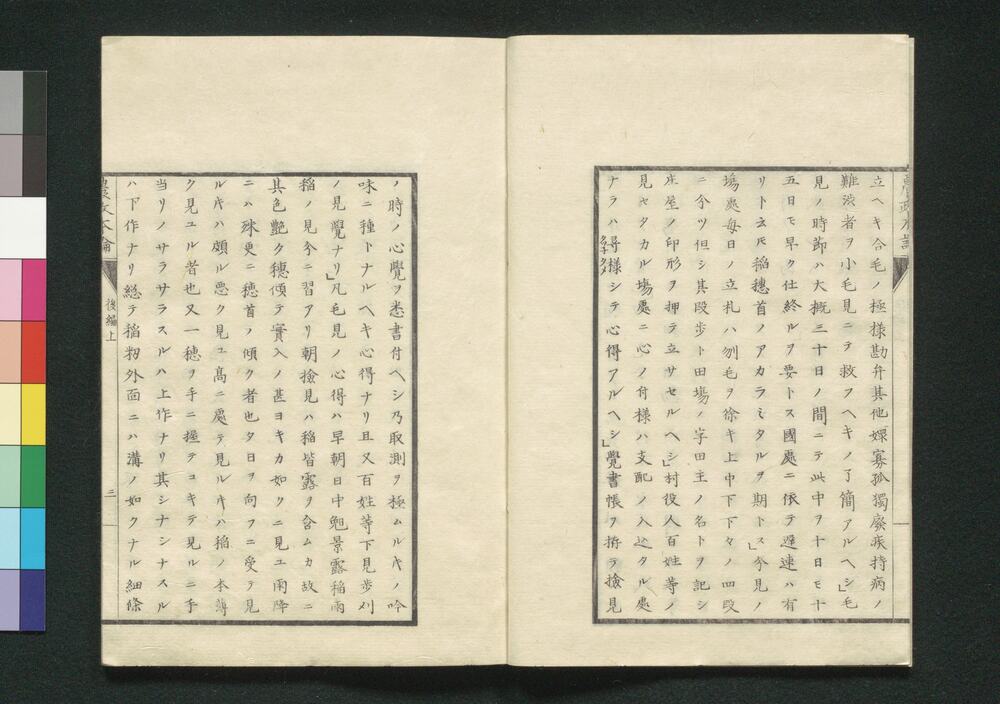 立ヘキ合毛ノ極様勘弁其他鰥寡孤獨廃疾持病ノ
難渋者ヲ小毛見ニテ救フヘキノ了簡アルヘシ」毛
見ノ時節ハ大概三十日ノ間ニテ此中ヲ十日モ十
五日モ早ク仕終ルヲ要トス國處ニ依テ遅速ハ有
リト云𪜈稲穂首ノアカラミタルヲ期トス」今見ノ
場處毎日ノ立札ハ刎毛ヲ徐キ上中下下々ノ四段
ニ今ツ但シ其段歩ト田場ノ字田主ノ名トヲ記シ
庄屋ノ印形ヲ押テ立サセルヘシ」村役人百姓等ノ
見セタカル場處ニ心ノ付様ハ支配ノ入込タル處
ナラハ尋様シテ心得アルヘシ」覺書帳ヲ拵ラ撿見
ノ時ノ心覺ヲ悉書付ヘシ乃取測ヲ極ムルキノ吟
味ニ種トナルヘキ心得ナリ且又百姓等下見歩刈
ノ見覺ナリ」凡毛見ノ心得ハ早朝日中晩景露稲雨
稲ノ見今ニ習アリ朝撿見ハ稲皆露ヲ含ムカ故ニ
其色艶ク穂傾テ實入ノ甚ヨキカ如クニ見ユ雨降
ニハ殊更ニ穂首ノ傾ク者也夕日ヲ向フニ受テ見
ルキハ頗ル悪ク見ユ高ニ處テ見ルキハ稲ノ本薄
ク見ユル者也又一穂ヲ手ニ握テコキテ見ルニ手
当リノサラサラスルハ上作ナリ其シナシナスル
ハ下作ナリ総テ稲籾外面ニハ溝ノ如クナル細條
後編上
三